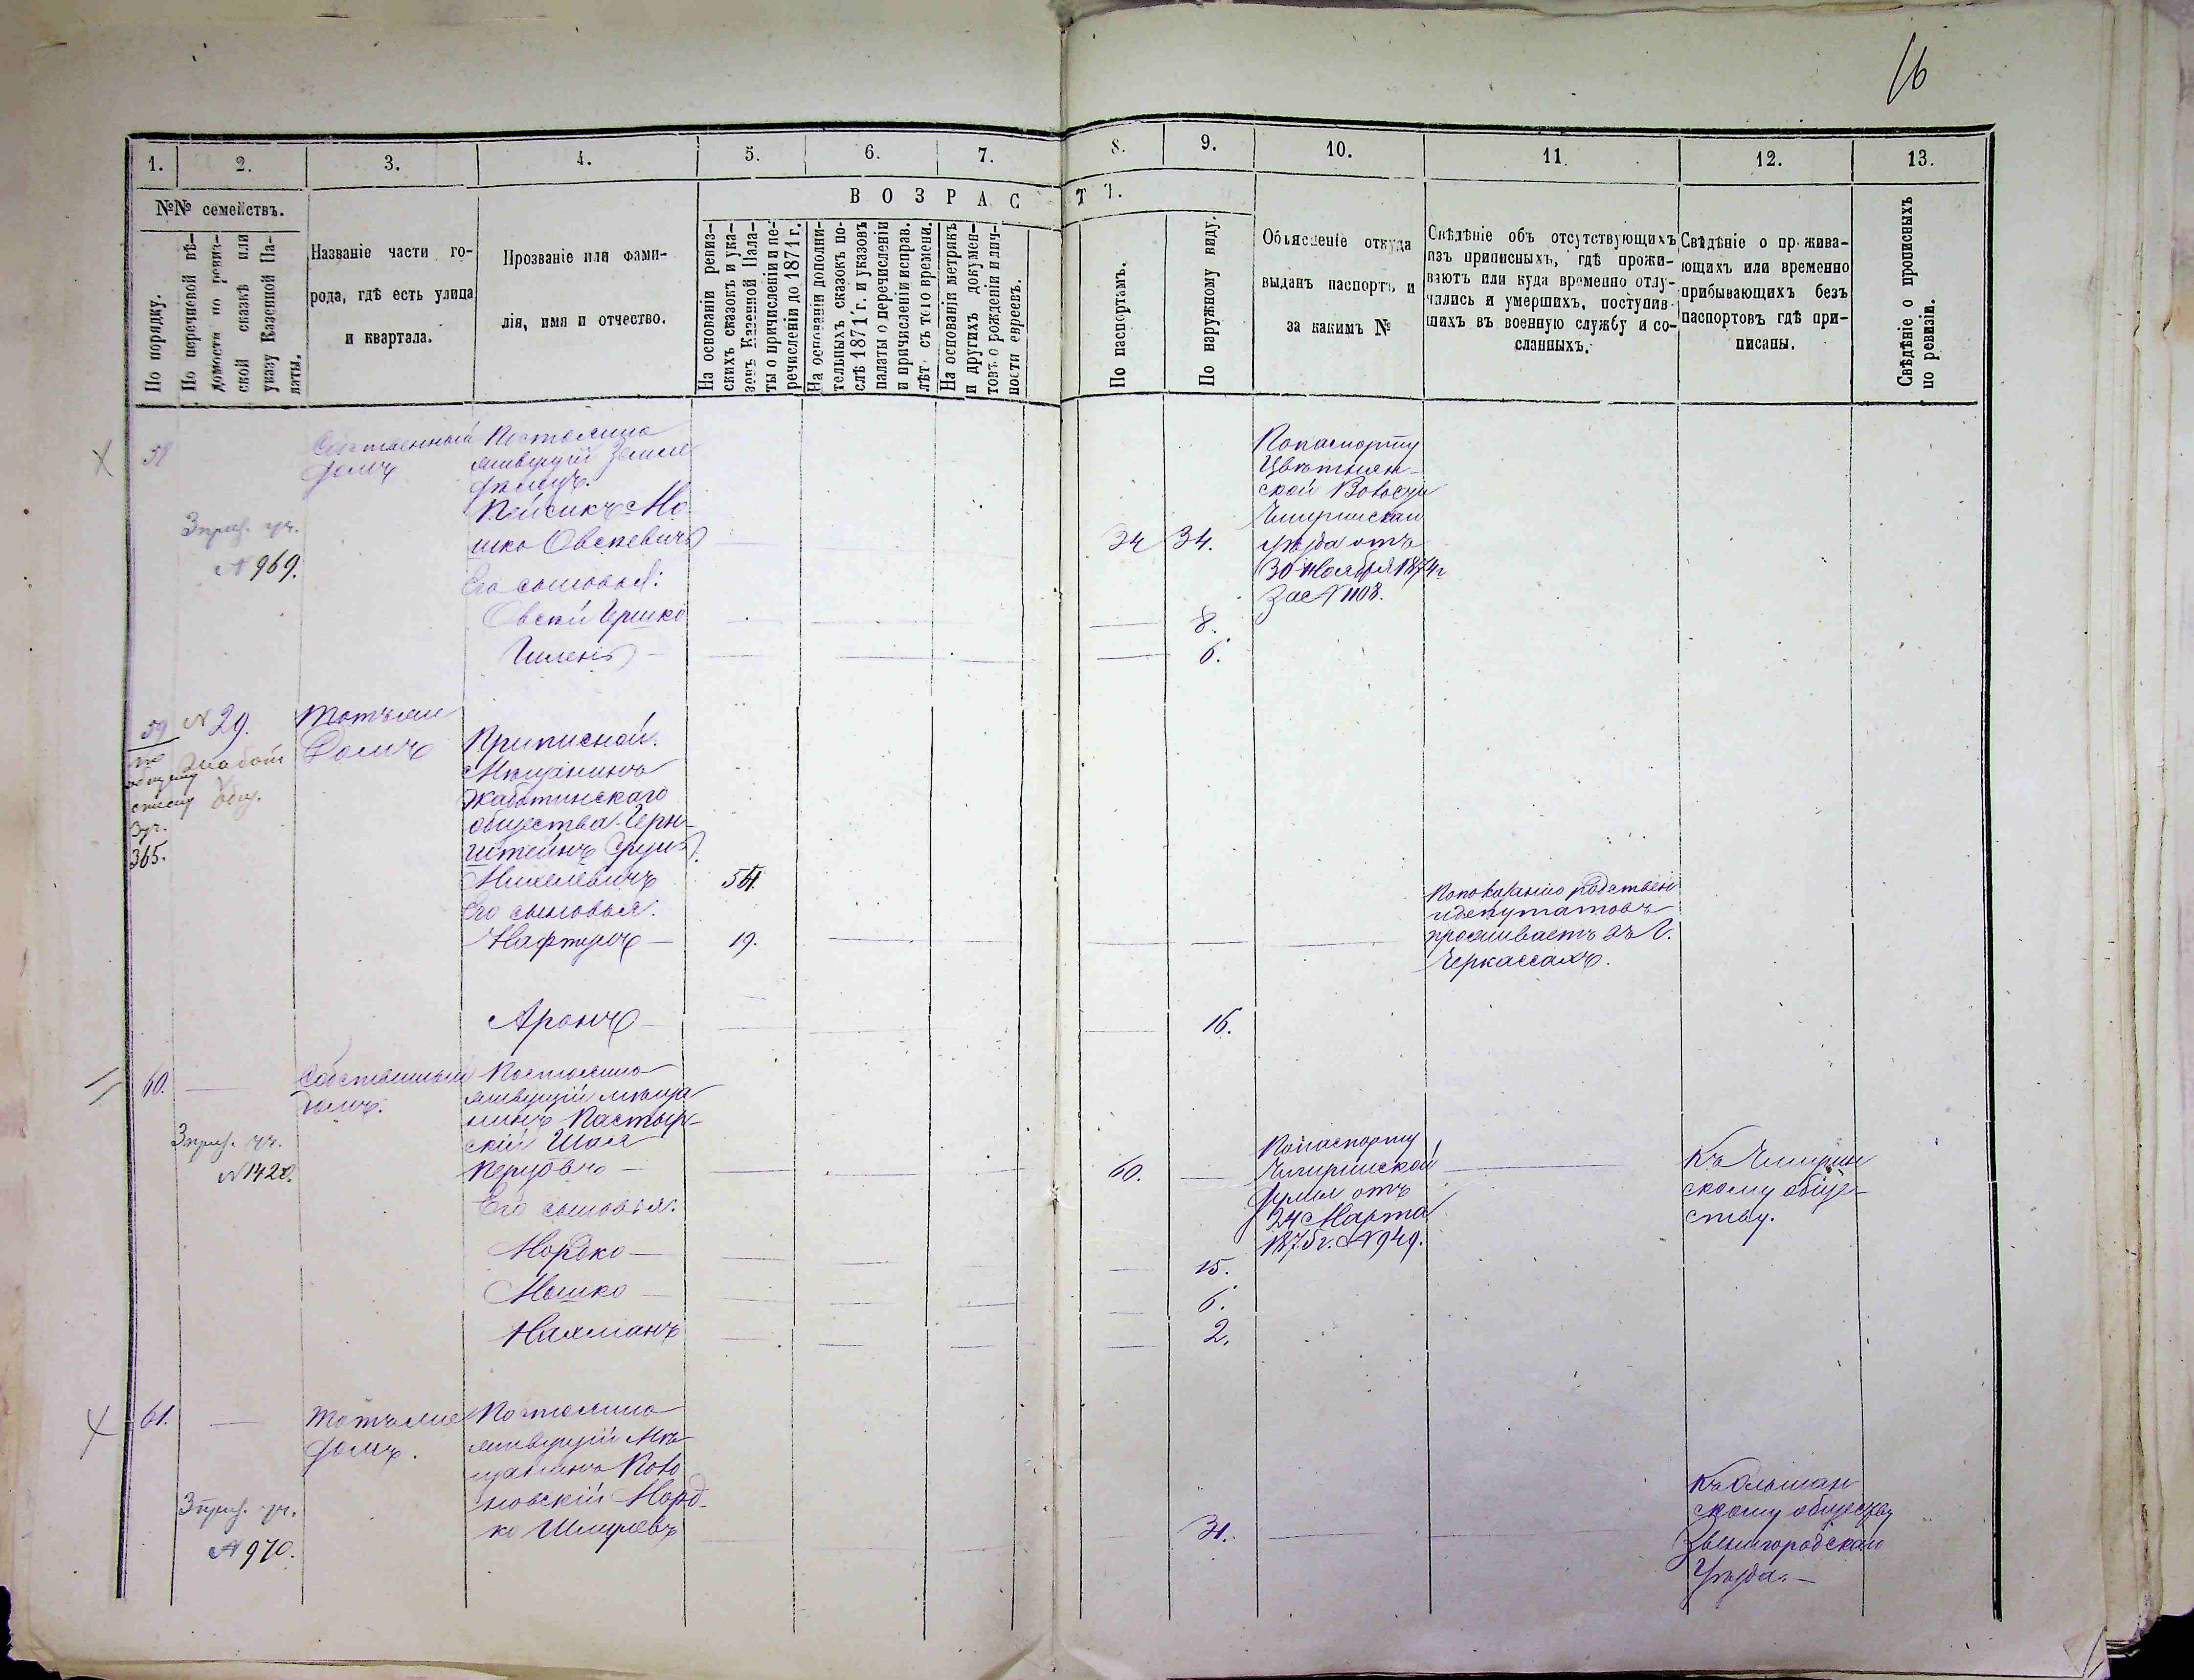 16
1.
2.
3.
4.
5.
6.
7.
8.
9.
10.
11.
12.
13.
№№ семействъ.
По порядку.
По перечневой вѣ-
домости по ревиз-
ской сказкѣ или
указу Казенной Па-
латы.
Названіе части го-
рода, гдѣ есть улица
и квартала.
Прозваніе или фами-
лія, имя и отчество.
ВОЗРАСТЪ.
На основаніи ревиз-
скихъ сказокъ и ука-
зовъ Казенной Пала-
ты о причисленіи и пе-
речисленіи до 1871 г.
На основаніи дополни-
тельныхъ сказокъ по-
слѣ 1871 г. и указовъ
палаты о перечисленіи
и причисленіи исправ.
лѣтъ съ того времени.
На основаніи метрикъ
и другихъ докумен-
товъ о рожденіи и лич-
ности евреевъ.
По паспортамъ.
По наружному виду.
Объясненіе откуда
выданъ паспортъ и
за какимъ №
Свѣдѣніе объ отсутствующихъ
изъ приписныхъ, гдѣ прожи-
ваютъ или куда временно отлу-
чились и умершихъ, поступив-
шихъ въ военную службу и со-
сланныхъ.
Свѣдѣніе о прожива-
ющихъ или временно
прибывающихъ безъ
паспортовъ гдѣ при-
писаны.
Свѣдѣніе о прописныхъ
по ревизіи.
58
Собственный
домъ
№ 969.
Постоянно
живущій Земле
дѣлецъ.
Пейсикъ Мо
шко Овсеевичъ
Его сыновья:
Овсей Гершко
34
34.
8.
6.
По паспорту
Цвѣтнян-
ской Волости
Чигиринскаго
уѣзда отъ
30 Ноября 1874 г
за № 1108.
59
по
общему
списку
3 уч.
365.
№ 29.
Жабот
общ.
Тотъ же
Домъ
Приписной.
Мѣщанинъ
Жаботинскаго
общества Герн-
штейнъ
Михелевичъ
Его сыновья:
Нафтула
Аронъ
54
19.
16.
По показанію родствен
и депутатовъ
проживаетъ въ Г.
Черкассахъ.
60.
Собственный
домъ.
№ 1422.
Постоянно
живущій мѣща
нинъ Пастыр-
скій Шая
Его сыновья:
Мордко
Мошко
Нахманъ
60.
15.
6.
2.
По паспорту
Чигиринской
Думы отъ
24 Марта
1875 г. № 949.
Къ Чигирин
скому обще-
ству.
61.
Тотъ же
домъ.
№ 970.
Постоянно
живущій Мѣ
щанинъ
новскій Морд-
ко Шмулевъ
31.
Къ Ольшан
скому обществу
Звенигородскаго
Уѣзда.